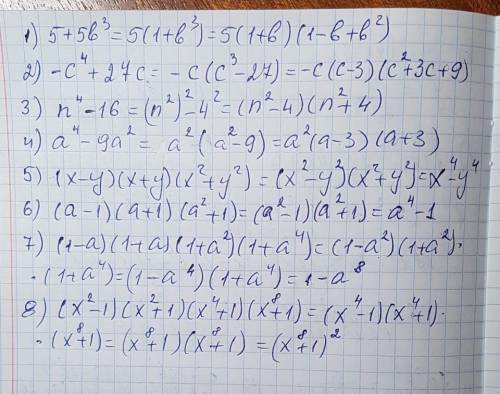 1) 5+5b³=5(1+b³)=5(1+b)(1-b+b²)
2) -c⁴+27c=-c(c³-27)=-c(c-3)(c²+3c+9)
3) n⁴-16=(n²)²-4²=(n²-4)(n²+4)
4) a⁴-9a²=a²(a²-9)=a²(a-3)(a+3)
5) (x-y)(x+y)(x²+y²)=(x²-y²)(x²+y²)=x⁴-y⁴
6) (a-1)(a+1)(a²+1)=(a²-1)(a²+1)=a⁴-1
7) (1-a)(1+a)(1+a²)(1+a⁴)=(1-a²)(1+a²)·
·(1+a⁴)=(1-a⁴)(1+a⁴)=1-a⁸
8) (x²-1)(x²+1)(x⁴+1)(x⁸+1)=(x⁴-1)(x⁴+1)·
·(x⁸+1)=(x⁸+1)(x⁸+1)=(x⁸+1)²